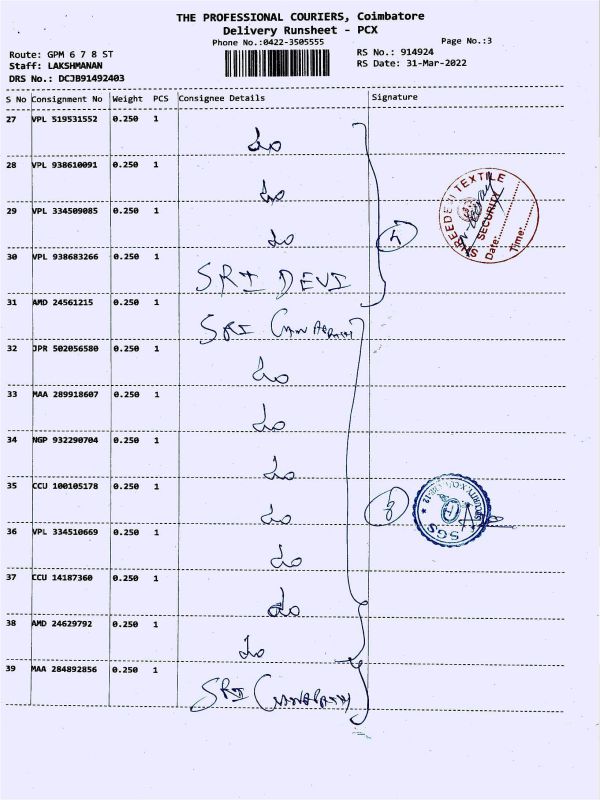 THE PROFESSIONAL COURIERS, Coimbatore
Delivery Runsheet - PCX
Phone No.:0422-3505555
Page No.:3
Route: GPM 6 7 8 ST
RS No.: 914924
Staff: LAKSHMANAN
RS Date: 31-Mar-2022
DRS No.: DCJB91492403
S No Consignment No Weight PCS Consignee Details Signature
27 VPL 519531552 0.250 1
do
28 VPL 938610091 0.250 1
do
29 VPL 334509085 0.250 1
do
30 VPL 938683266 0.250 1
SRI DEVI
31 AMD 24561215 0.250 1
SRI
32 JPR 502056580 0.250 1
do
33 MAA 289918607 0.250 1
do
34 NGP 932290704 0.250 1
do
35 CCU 100105178 0.250 1
do
36 VPL 334510669 0.250 1
do
37 CCU 14187360 0.250 1
do
38 AMD 24629792 0.250 1
do
39 MAA 284892856 0.250 1
SRI
TEXTILE
SECURITY
Date:
Time:
SGS